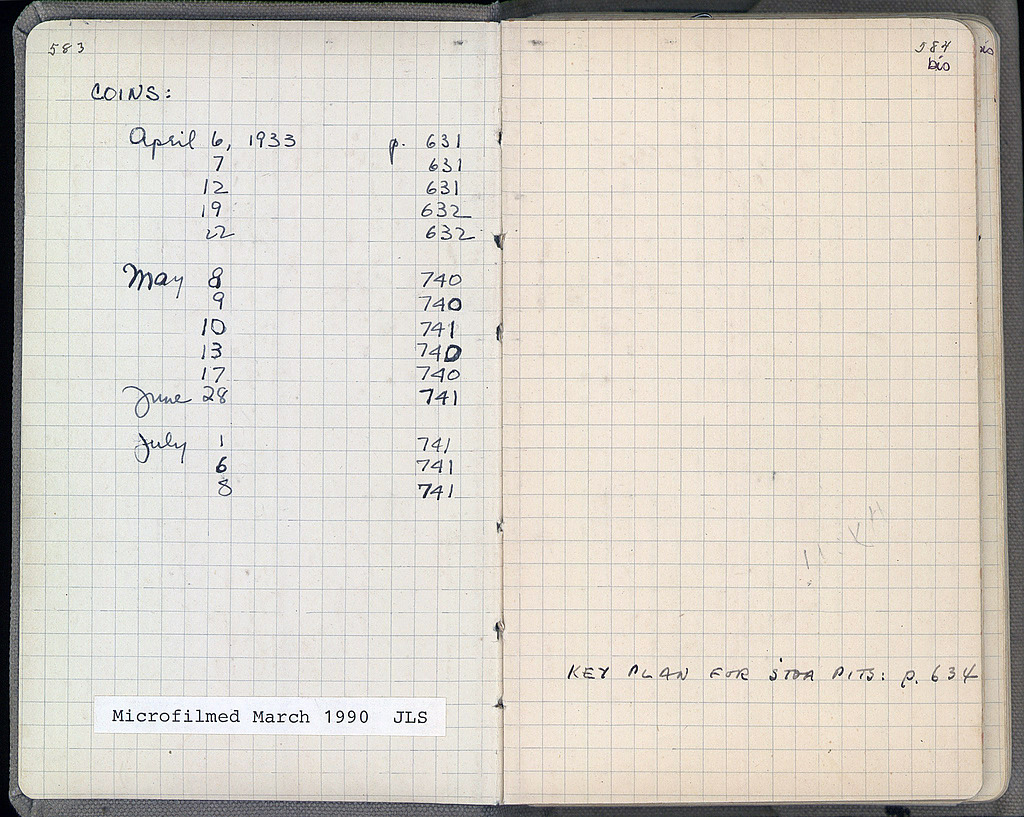 583
COINS:
April 6, 1933 p. 631
7 631
12 631
19 632
22 632
May 8 740
9 740
10 741
13 740
17 740
June 28 741
July 1 741
6 741
8 741
Microfilmed March 1990 JLS
584
bis
KEY PLAN FOR STOA PITS: p. 634